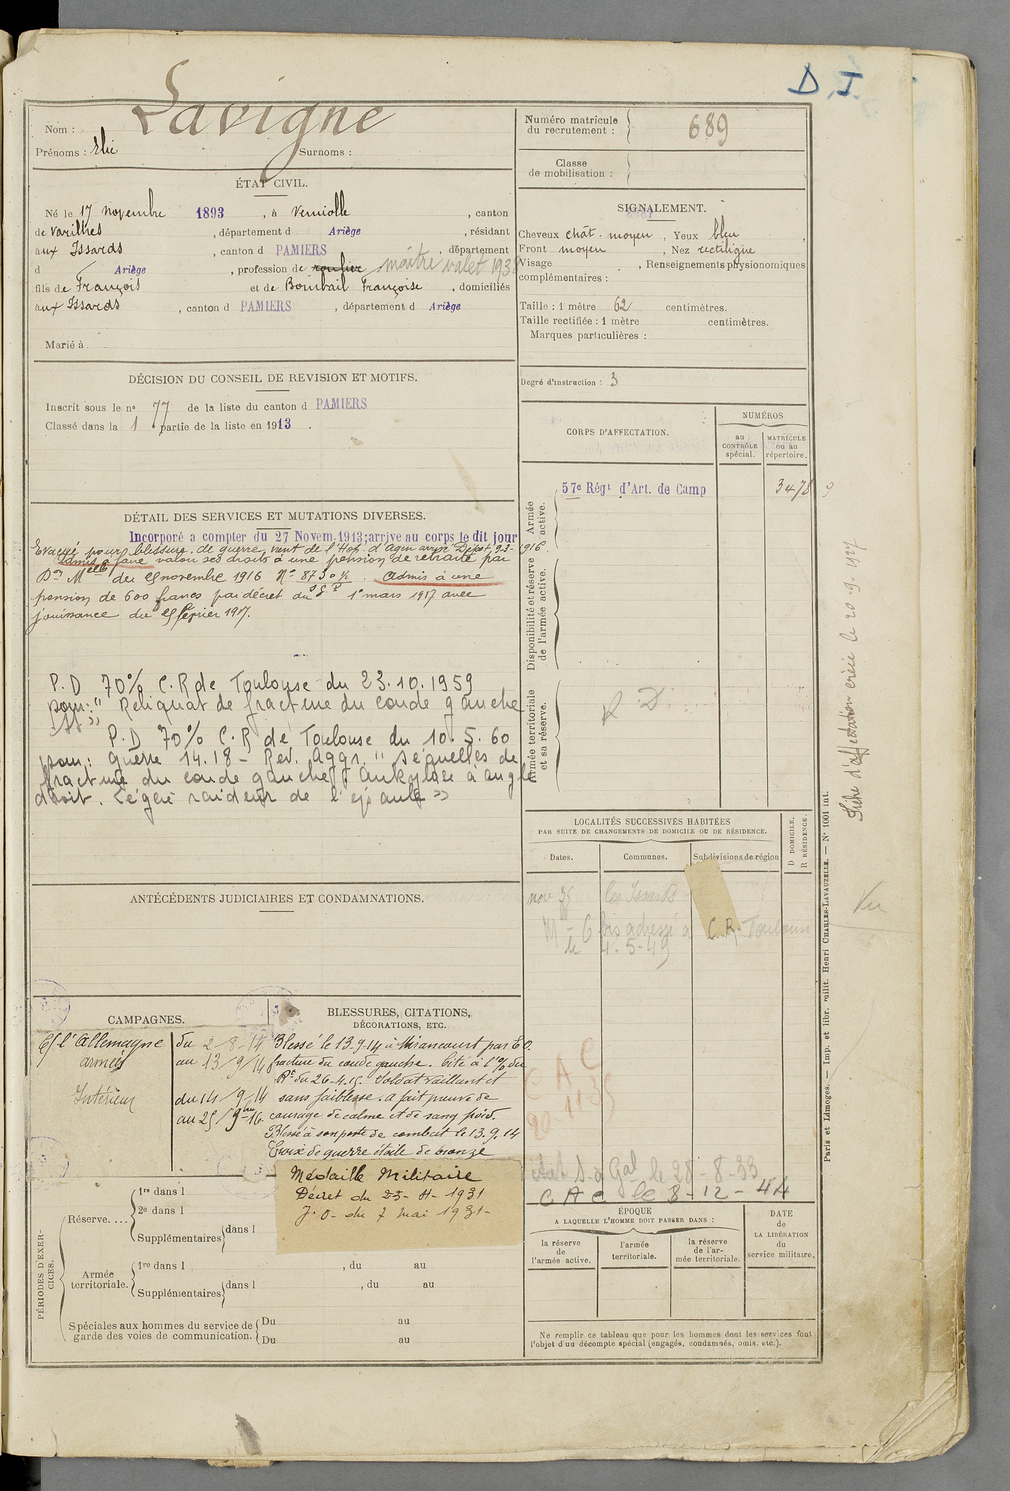 D. I.
Lavigne
Nom :
Prénoms : Elie Surnoms :
Numéro matricule
du recrutement : 689
Classe
de mobilisation :
ÉTAT CIVIL.
Né le 17 novembre 1893, à Verniolle, canton
de Varilhes, département d Ariège, résidant
aux Issards, canton d PAMIERS, département
d Ariège, profession de maître valet 193
fils de François et de Bombail Françoise, domiciliés
aux Issards, canton d PAMIERS, département d Ariège
Marié à
SIGNALEMENT.
Cheveux chât. moyen, Yeux bleu,
Front moyen, Nez rectiligne
Visage , Renseignements physionomiques
complémentaires :
Taille : 1 mètre 62 centimètres.
Taille rectifiée : 1 mètre centimètres.
Marques particulières :
Degré d'instruction : 3
DÉCISION DU CONSEIL DE REVISION ET MOTIFS.
Inscrit sous le nº 77 de la liste du canton d PAMIERS
Classé dans la 1 partie de la liste en 1913.
CORPS D'AFFECTATION.
NUMÉROS
au
CONTRÔLE
spécial.
MATRICULE
ou au
répertoire.
Armée
active.
57e Régt d'Art. de Camp 3478
Disponibilité et réserve
de l'armée active.
Armée territoriale
et sa réserve.
R.D.
DÉTAIL DES SERVICES ET MUTATIONS DIVERSES.
Incorporé a compter du 27 Novem. 1913; arrive au corps le dit jour
Evacué pour blessure de guerre, vient de l'Hop. d'Agen arrive Dépôt, 23- 1916.
Admis à faire valoir ses droits à une pension de retraite par
Don Melle du 25 novembre 1916 Nº 8730 . Admis à une
pension de 600 francs par décret du 1er mars 1917 avec
jouissance du 25 février 1917.
P.D 70% C.R de Toulouse du 23.10.1959
pour: " Reliquat de fracture du coude gauche
P.D 70% C.R de Toulouse du 10.5.60
pour: guerre 14.18 - Rev. Aggr. " séquelles de
fracture du coude gauche, ankylose à angle
droit. Légère raideur de l'épaule "
LOCALITÉS SUCCESSIVES HABITÉES
PAR SUITE DE CHANGEMENTS DE DOMICILE OU DE RÉSIDENCE.
Dates. Communes. Subdivisions de région
D DOMICILE.
R RÉSIDENCE.
nov 35 les Issards
M - 6 bis adressé à C.R. Toulouse
le 4.5.49
ANTÉCÉDENTS JUDICIAIRES ET CONDAMNATIONS.
CAMPAGNES.
C/ l'Allemagne
armées
du 2-8-14
au 13/9/14
Intérieur
du 14/9/14
au 25/9bre 16
BLESSURES, CITATIONS,
DÉCORATIONS, ETC.
Blessé le 13.9.14 à Mirancourt par E.O.
fracture du coude gauche. Cité à l'O/ du
Rt du 26-4-15. Soldat vaillant et
sans faiblesse. A fait preuve de
courage de calme et de sang froid.
Blessé à son poste de combat le 13.9.14
Croix de guerre étoile de bronze
Médaille Militaire
Décret du 23-4-1931
J.O. du 7 Mai 1931-
C A C
S. à Gal le 28-8-33
C A C le 8-12-44
PÉRIODES D'EXER-
CICES.
Réserve....
1re dans l
2e dans l
Supplémentaires dans l
Armée
territoriale.
1re dans l , du au
Supplémentaires dans l , du au
Spéciales aux hommes du service de
garde des voies de communication.
Du au
Du au
ÉPOQUE
A LAQUELLE L'HOMME DOIT PASSER DANS :
la réserve
de
l'armée active.
l'armée
territoriale.
la réserve
de l'ar-
mée territoriale.
DATE
de
LA LIBÉRATION
du
service militaire.
Ne remplir ce tableau que pour les hommes dont les services font
l'objet d'un décompte spécial (engagés, condamnés, omis, etc.).
Paris et Limoges. — Imp. et libr. milit. Henri CHARLES-LAVAUZELLE. — Nº 1001 int.
Fiche d'affectation créée le 20.9.1927
Vu